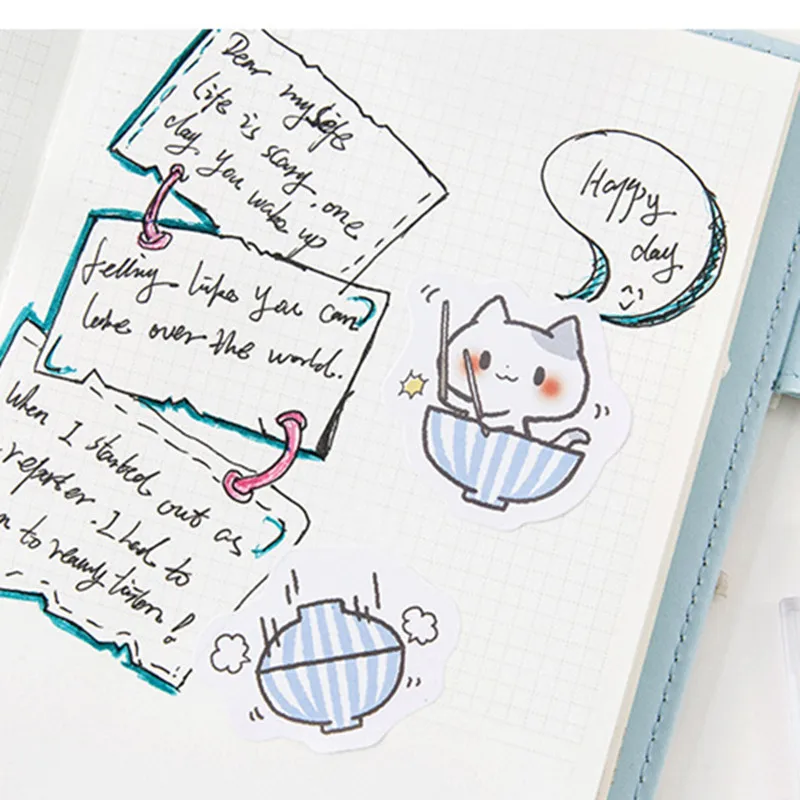 Dear myself
life is scary, one
day you wake up
felling like you can
take over the world.
When I started out as
reporter. I had to
to really listen!
Happy
day